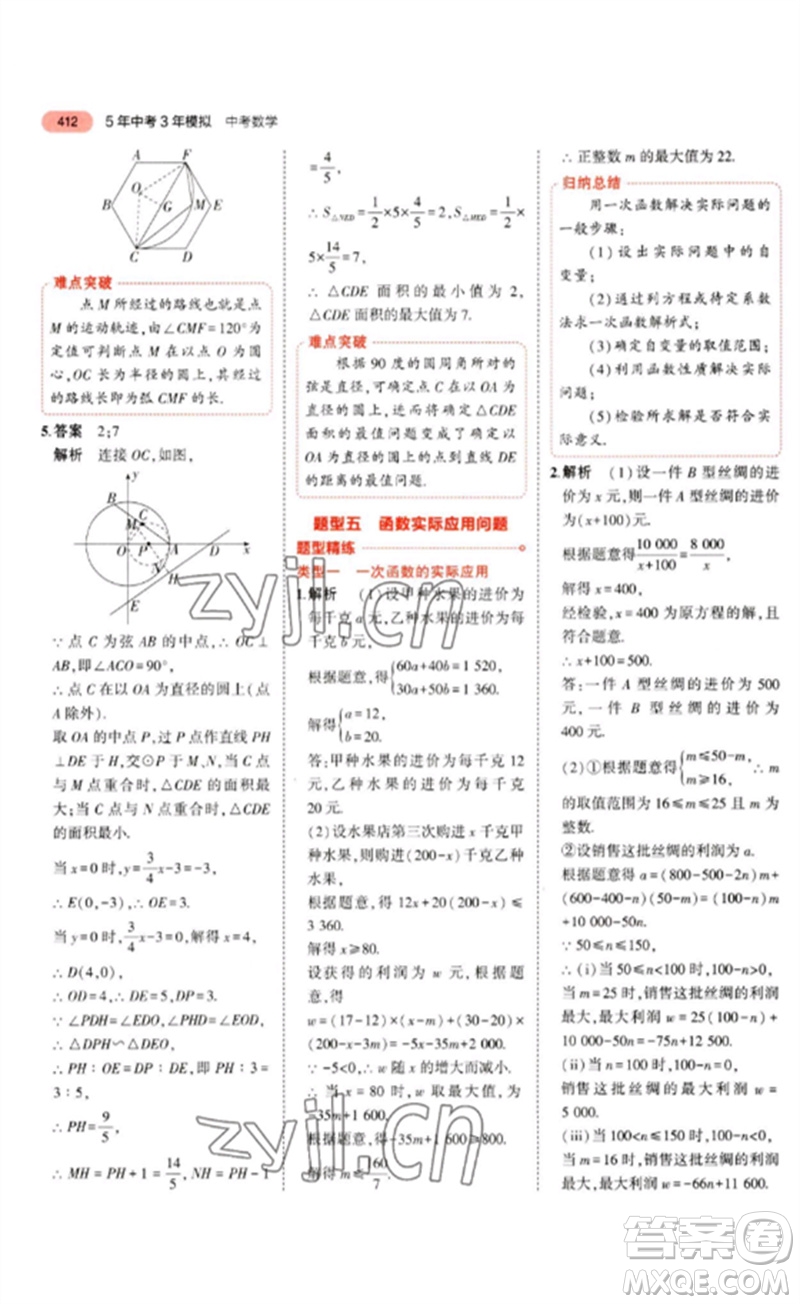 412 5年中考3年模拟 中考数学
A F
O
B G M E
C D
难点突破
点M所经过的路线也就是点
M的运动轨迹,由∠CMF=120°为
定值可判断点M在以点O为圆
心,OC长为半径的圆上,其经过
的路线长即为弧CMF的长.
5.答案 2;7
解析 连接OC,如图,
y
B
M C
O P A D x
N H
E
∵点C为弦AB的中点,∴OC⊥
AB,即∠ACO=90°,
∴点C在以OA为直径的圆上(点
A除外).
取OA的中点P,过P点作直线PH
⊥DE于H,交⊙P于M、N,当C点
与M点重合时,△CDE的面积最
大;当C点与N点重合时,△CDE
的面积最小.
当x=0时,y=3/4x-3=-3,
∴E(0,-3),∴OE=3.
当y=0时,3/4x-3=0,解得x=4,
∴D(4,0),
∴OD=4,∴DE=5.
∵∠PDH=∠EDO,∠PHD=∠EOD,
∴△DPH∽△DEO,
∴PH:OE=DP:DE,即PH:3=
3:5,
∴PH=9/5,
∴MH=PH+1=14/5,NH=PH-1
=4/5,
∴S△NED=1/2×5×4/5=2,S△MED=1/2×
5×14/5=7,
∴△CDE面积的最小值为2,
△CDE面积的最大值为7.
难点突破
根据90度的圆周角所对的
弦是直径,可确定点C在以OA为直
径的圆上,进而将确定△CDE
面积的最值问题变成了确定以
OA为直径的圆上的点到直线DE
的距离的最值问题.
题型五 函数实际应用问题
题型精练
类型一 一次函数的实际应用
1.解析 (1)设甲种水果的进价为
每千克a元,乙种水果的进价为
每千克b元,
根据题意,得{60a+40b=1 520,
30a+50b=1 360.
解得{a=12,
b=20.
答:甲种水果的进价为每千克12
元,乙种水果的进价为每千克
20元.
(2)设水果店第三次购进x千克甲
种水果,则购进(200-x)千克乙种
水果,
根据题意,得12x+20(200-x)≤
3 360.
解得x≥80.
设获得的利润为w元,根据题
意,得
w=(17-12)×(x-m)+(30-20)×
(200-x-3m)=-5x-35m+2 000,
∵-5<0,∴w随x的增大而减小.
∴当x=80时,w取最大值,为
-35m+1 600,
根据题意,得-35m+1 600≥800.
解得m≤160/7.
∴正整数m的最大值为22.
归纳总结
用一次函数解决实际问题的
一般步骤:
(1)设出实际问题中的自
变量;
(2)通过列方程或待定系数
法求一次函数解析式;
(3)确定自变量的取值范围;
(4)利用函数性质解决实际
问题;
(5)检验所求解是否符合实
际意义.
2.解析 (1)设一件B型丝绸的进
价为x元,则一件A型丝绸的进价
为(x+100)元.
根据题意得10 000/x+100=8 000/x,
解得x=400,
经检验,x=400为原方程的解,且
符合题意.
∴x+100=500.
答:一件A型丝绸的进价为500
元,一件B型丝绸的进价为
400元.
(2)①根据题意得{m≤50-m,
m≥16, ∴m
的取值范围为16≤m≤25且m为
整数.
②设销售这批丝绸的利润为a.
根据题意得a=(800-500-2n)m+
(600-400-n)(50-m)=(100-n)m+
10 000-50n.
∵50≤n≤150,
∴(i)当50≤n<100时,100-n>0,
当m=25时,销售这批丝绸的利润
最大,最大利润w=25(100-n)+
10 000-50n=-75n+12 500.
(ii)当n=100时,100-n=0,
销售这批丝绸的最大利润w=
5 000.
(iii)当100<n≤150时,100-n<0,
当m=16时,销售这批丝绸的利润
最大,最大利润w=-66n+11 600.
zyjl.cn
zyjl.cn
答案圈
MXQE.COM